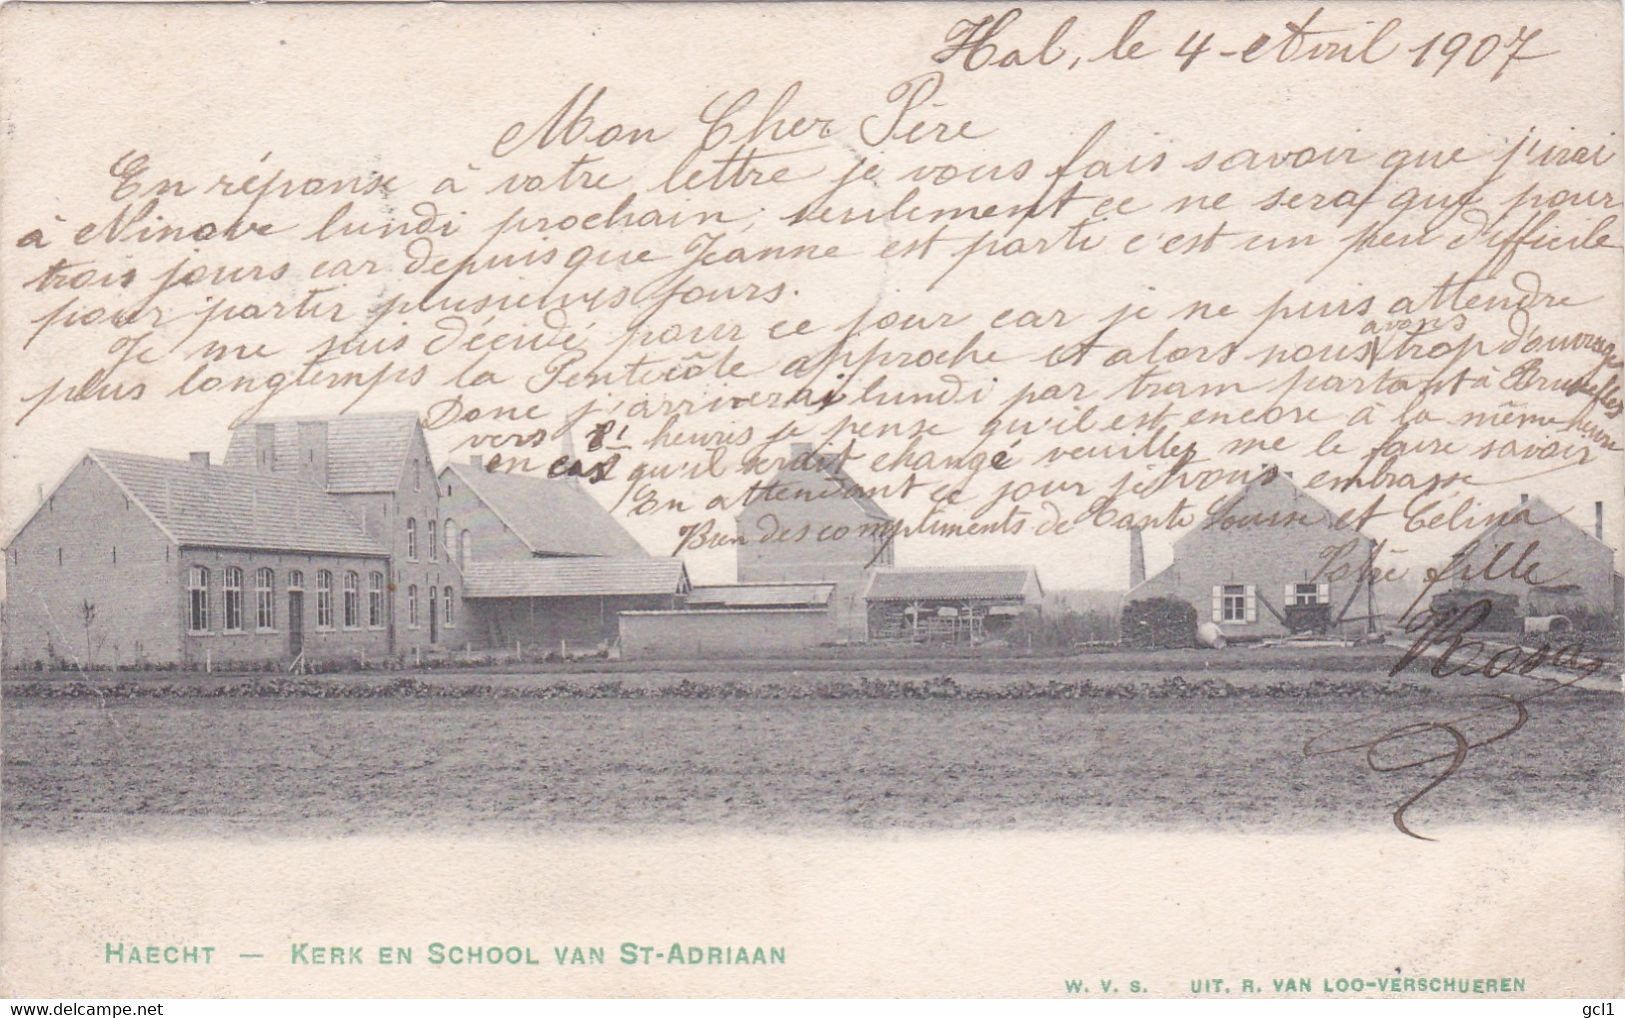 Hal, le 4 Avril 1907
Mon Cher Père
En réponse à votre lettre je vous fais savoir que j'irai
à Ninove lundi prochain, seulement ce ne sera que pour
trois jours car depuis que Jeanne est parti c'est un peu difficile
pour partir plusieurs jours.
Je me suis décidé pour ce jour car je ne puis attendre
plus longtemps la Pentecôte approche et alors nous avons trop d'ouvrage
Donc j'arriverai lundi par tram partant à Bruxelles
vers heures je pense qu'il est encore à la même heure
en cas qu'il serait changé veuillez me le faire savoir
En attendant ce jour je vous embrasse
Bien des compliments de Tante Louise et Célina
Votre fille
Rosa
HAECHT — KERK EN SCHOOL VAN ST-ADRIAAN
W. V. S. UIT. R. VAN LOO-VERSCHUEREN
www.delcampe.net
gcl1